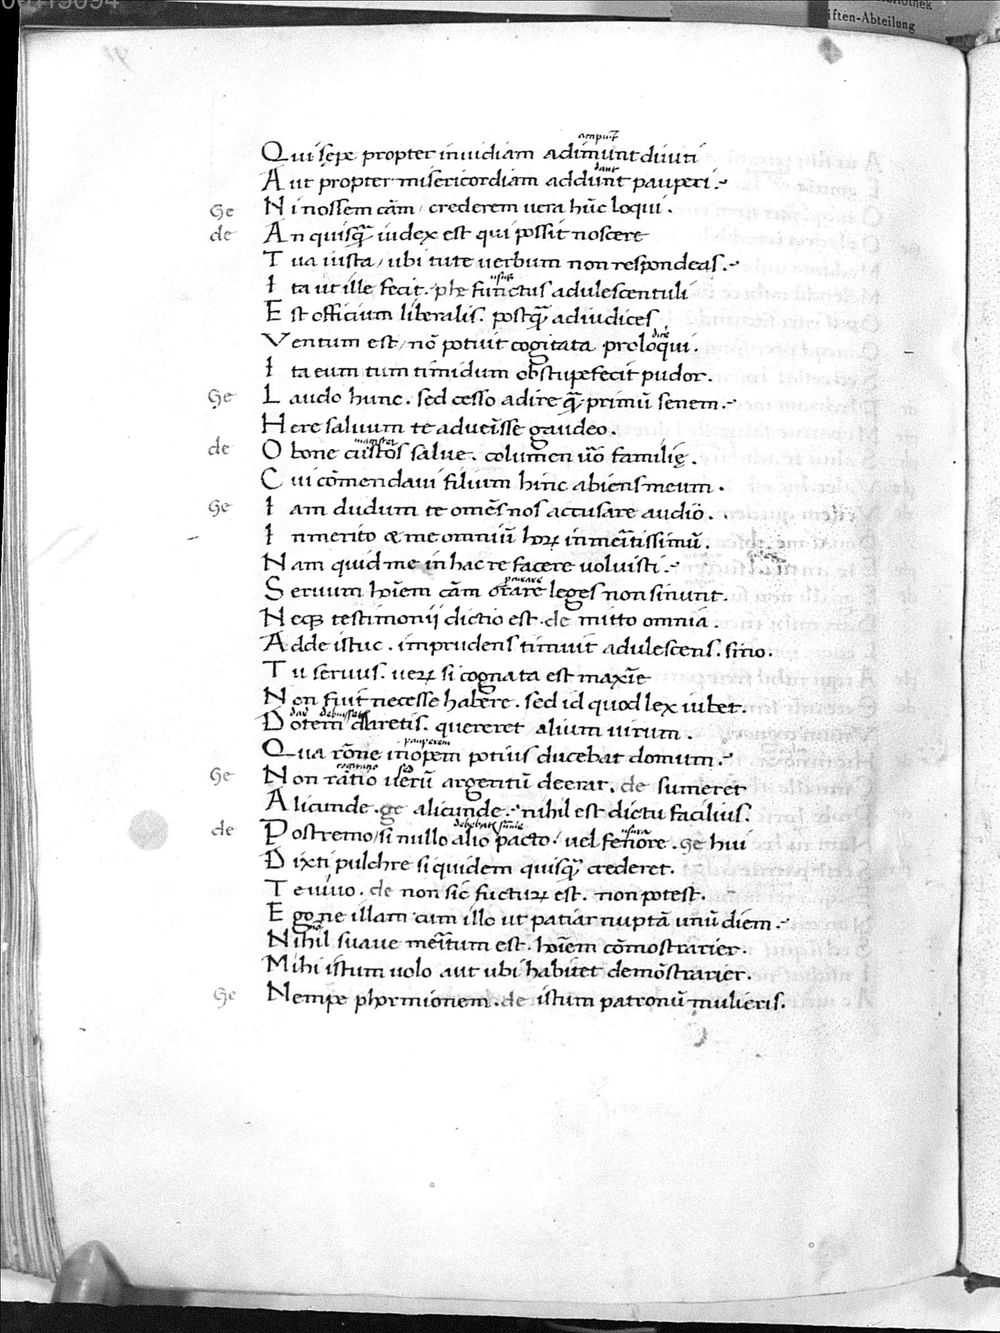 00413094
bibliothek
iften-Abteilung
amputāt
Qui sepe propter inuidiam adimunt diuiti
dant
Aut propter misericordiam addunt pauperi.
Ge Ni nossem cām / crederem uera hūc loqui.
de An quisq̄ iudex est qui possit noscere
Tua iusta / ubi tute uerbum non respondeas.
usus
Ita ut ille fecit. phe functus adulescentuli
Est officium liberalis. postq̄ ad iudices
dicere
Ventum est / nō potuit cogitata proloqui.
Ita eum tum timidum obstupefecit pudor.
Ge Laudo hunc. sed cesso adire q̄ primū senem.
Here saluum te aduēisse gaudeo.
magister
de O bone custos salue. columen uō familię.
Cui cōmendaui filium hinc abiens meum.
Ge Iam dudum te omēs nos accusare audio.
Inmerito & me omniū hoꝝ inmēitissimū.
Nam quid me in hac re facere uoluisti.
Seruum hoīem cām orare leges non sinunt.
Neqꝫ testimonii dictio est. de mitto omnia.
Adde istuc. imprudens timuit adulescens. sino.
Tu seruus. ueꝝ si cognata est maxīe
Non fuit necesse habere. sed id quod lex iubet.
debuissetis
Dotem daretis. quereret alium uirum.
pauperem
Qua rōne inopem potius ducebat domum.
Ge Non ratio uerū argentū deerat. de sumeret
Alicunde. ge alicunde. nihil est dictu facilius.
usura
de Postremo / si nullo alio pacto / uel fenore. ge hui
Dixti pulchre siquidem quisq̄ crederet.
Te uiuo. de non sic futuꝝ est. non potest.
Egone illam cum illo ut patiar nuptā unū diem.
Nihil suaue mēitum est. hoīem cōmostrarier.
Mihi istum uolo aut ubi habitet demōstrarier.
Ge Nempe phormionem. de istum patronū mulieris.